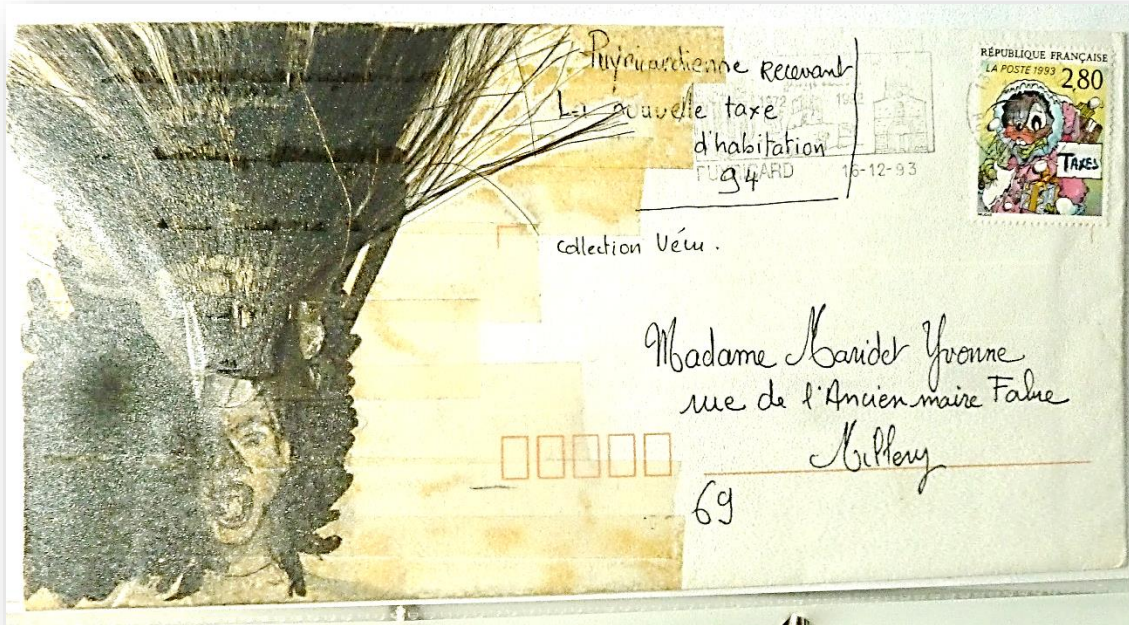 Puyricardienne Recevant
La nouvelle taxe
d'habitation
94
PUYRICARD 16-12-93
RÉPUBLIQUE FRANÇAISE
LA POSTE 1993 2,80
TAXES
collection Vécu.
Madame Maridet Yvonne
rue de l'Ancien maire Fabre
Millery
69